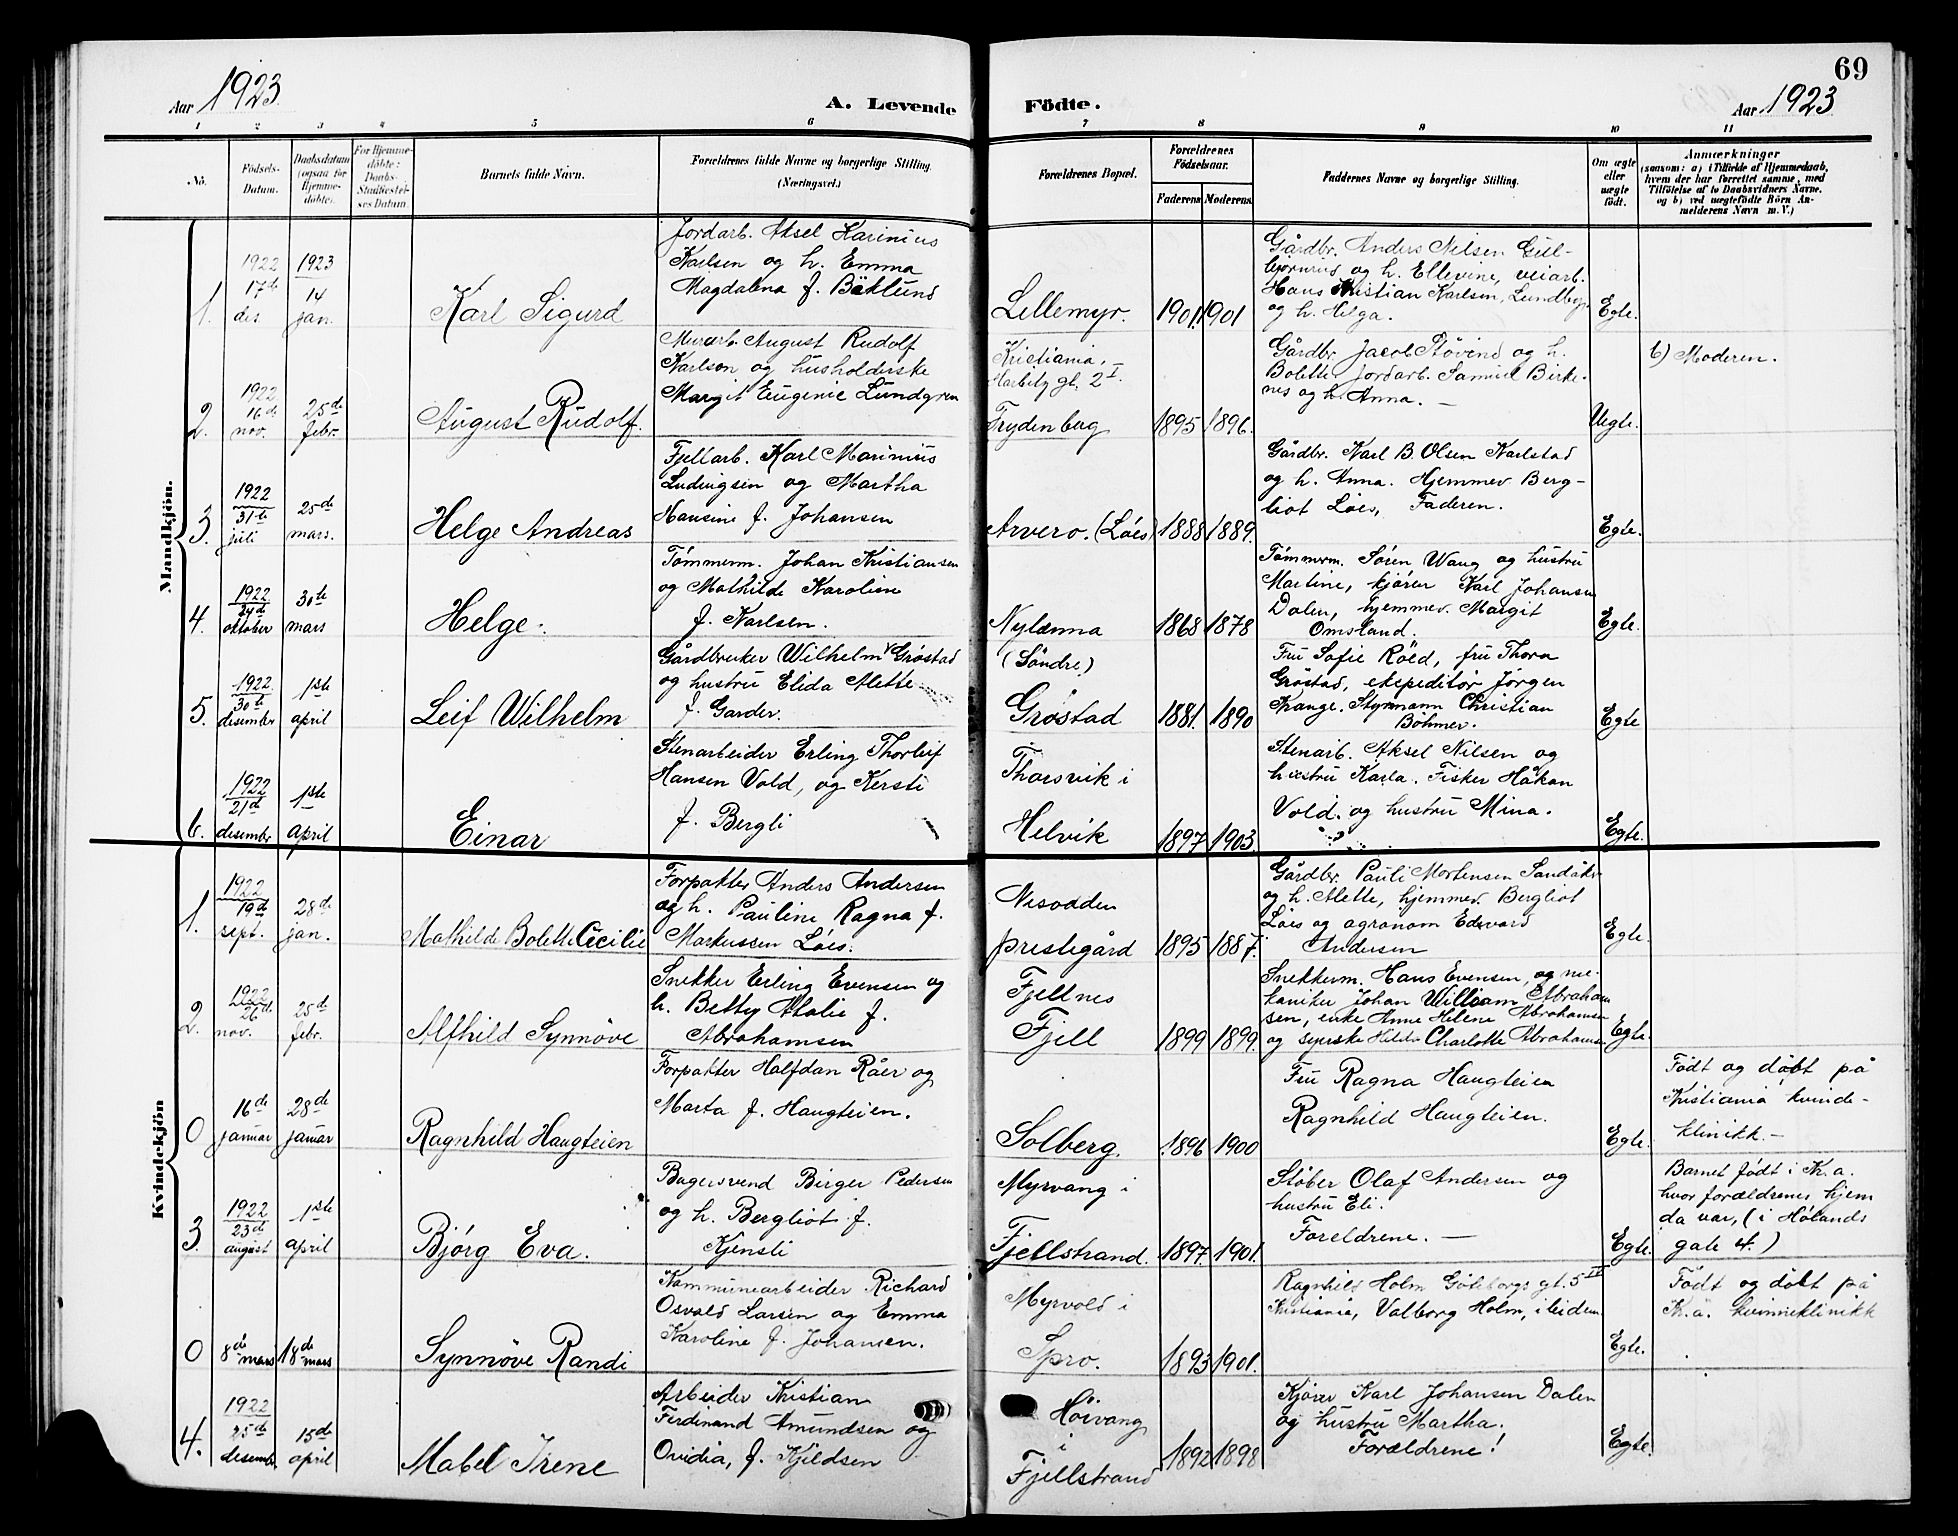 69
Aar 1923. A. Levende Födte. Aar 1923
1 2 3 4 5 6 7 8 9 10 11
No. Födsels-Datum. Daabsdatum (ogsaa for Hjemme-döbte). For Hjemme-döbte: Daabs-Stadfæstel-ses Datum. Barnets fulde Navn. Forældrenes fulde Navne og borgerlige Stilling. (Næringsvei.) Forældrenes Bopæl. Forældrenes Födselsaar. Faderens Moderens. Faddernes Navne og borgerlige Stilling. Om ægte eller uægte født.
Anmærkninger
(saasom: a) i Tilfælde af Hjemmedaab,
hvem der har forrettet samme, med
Tilföielse af to Daabsvidners Navne.
og b) ved uægtefödte Börn An-
melderens Navn m. V.)
Mandkjön.
1. 1922 17de des 1923 14 jan. Karl Sigurd
Jordarb. Aksel Karinius
Karlsen og h. Emma
Magdalena f. Bäklund
Lillemyr. 1901 1901
Gårdbr. Anders Nilsen Gul-
bjørnrud og h. Ellevine, veiarb.
Hans Kristian Karlsen, Lundby,
og h. Helga.
Egte.
2. 1922 16de nov. 25de febr. August Rudolf.
Murarb. August Rudolf
Karlsen og husholderske
Margit Eugenie Lundgren
Kristiania,
gt. 2 I.
Frydenberg 1895 1896.
Gårdbr. Jacob Støvind og h.
Bolette. Jordarb. Samuel Birke-
nes og h. Anna. —
Uegte.
b) Moderen.
3. 1922 31te juli 25de mars. Helge Andreas
Fjellarb. Karl Marinius
Ludvigsen og Martha
Hansine f. Johansen
Arvero. (Løes) 1888 1889.
Gårdbr. Karl B. Olsen Karlstad
og h. Anna. Hjemmev. Berg-
liot Løes, Faderen.
Egte.
4. 1922. 24de oktober 30te mars Helge.
Tømmerm. Johan Kristiansen
og Mathilde Karoline
f. Karlsen.
Nylænna 1868 1878
Tømmerm. Søren Wang og hustru
Martine, kjører Karl Johansen
Dalen, hjemmev. Margit
Omsland.
Egte.
5. 1922. 30te desember 1ste april Leif Wilhelm
Gårdbruker Wilhelm Grøstad
og hustru Elida Alette
f. Garder.
(Søndre)
Grøstad 1881. 1890
Fru Sofie Røed, fru Thora
Grøstad, ekspeditør Jørgen
Krange. Styrmann Christian
Bøhmer.
Egte
6. 1922 21de desember 1ste april Einar
Stenarbeider Erling Thorleif
Hansen Vold, og Kersti
f. Bergli
Thorsvik i
Helvik 1897 1903.
Stenarb. Aksel Nilsen og
hustru Karla. Fisker Håkan
Vold. og hustru Mina.
Egte.
Kvindekjön
1. 1922 19de sept. 28de jan. Mathilde Bolette Cecilie
Forpakter Anders Andersen
og h. Pauline Ragna f.
Markussen Løes.
Nesodden
prestegård 1895 1887.
Gårdbr. Pauli Mortensen Sandåker
og h. Alette, hjemmev. Bergliot
Løes og agronom Edvard
Andersen
Egte.
2. 1922 26de nov. 25de febr. Alfhild Synnøve
Snekker Erling Evensen og
h. Betty Atalie f.
Abrahamsen
Fjellnes
Fjell 1899 1899.
Snekkerm. Hans Evensen, og me-
kaniker Johan William Abraham
sen, enke Anne Helene Abrahamsen
og syerske Hilda Charlotte Abrahamsen
Egte.
0 16de januar 28de januar Ragnhild Haugteien
Forpakter Halfdan Råer og
Marta f. Haugteien.
Solberg. 1896 1900
Fru Ragna Haugteien
Ragnhild Haugteien.
Egte.
Født og døbt på
Kristiania kvinde-
klinikk. —
3. 1922 23de august 1ste april Bjørg Eva.
Bagersvend Birger Pedersen
og h. Bergliot f.
Kjensli
Myrvang i
Fjellstrand. 1897 1901.
Støber Olaf Andersen og
hustru Eli.
Foreldrene. —
Egte.
Barnet født i Kr.a.
hvor forældrenes hjem
da var, (i Hølands
gate 4.)
0 8de mars 18de mars Synnøve Randi
Kommunearbeider Richard
Osvald Larsen og Emma
Karoline f. Johansen.
Myrvold i
Spro. 1893 1901.
Ragnhild Holm Göteborgs gt. 5 IV
Kristiania, Valborg Holm, ibidem
Egte.
Født og døbt på
Kr.a. kvinneklinikk
4. 1922 25de desembr. 15de april Mabel Irene
Arbeider Kristian
Ferdinand Amundsen og
Ovidia, f. Kjeldsen
Høivang
i
Fjellstrand 1892 1898
Kjører Karl Johansen Dalen
og hustru Martha.
Forældrene!
Egte.